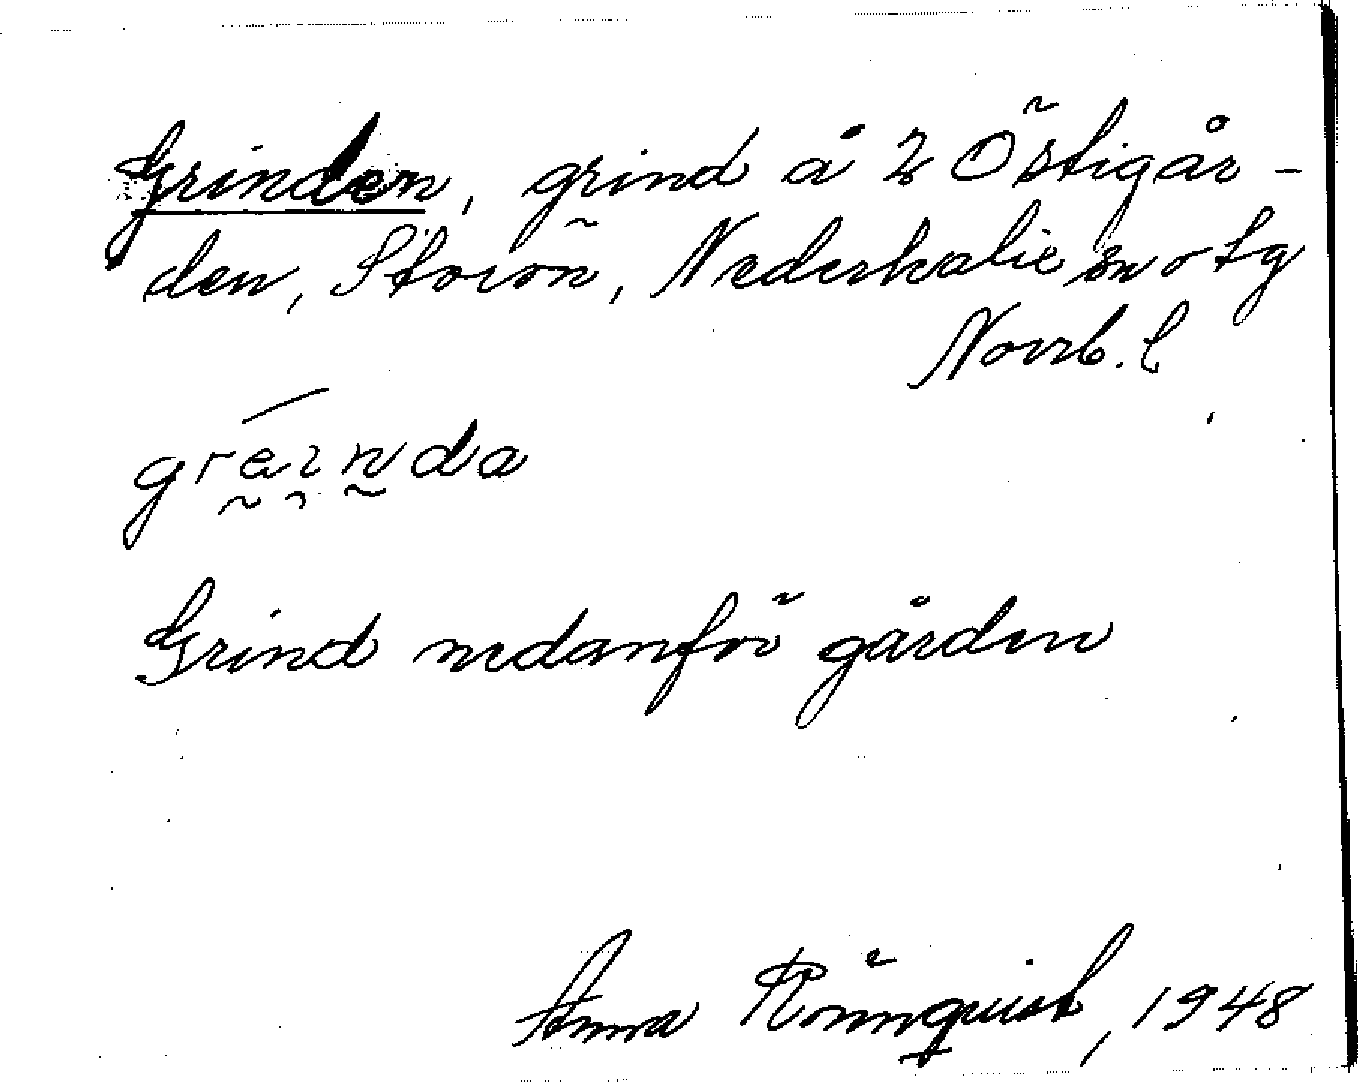 Grinden, grind å 2 Östigår-
den, Storön, Nederkalix sn o tg
Norrb. l
gräinda
Grind nedanför gården
Anna Rönnquist, 1948